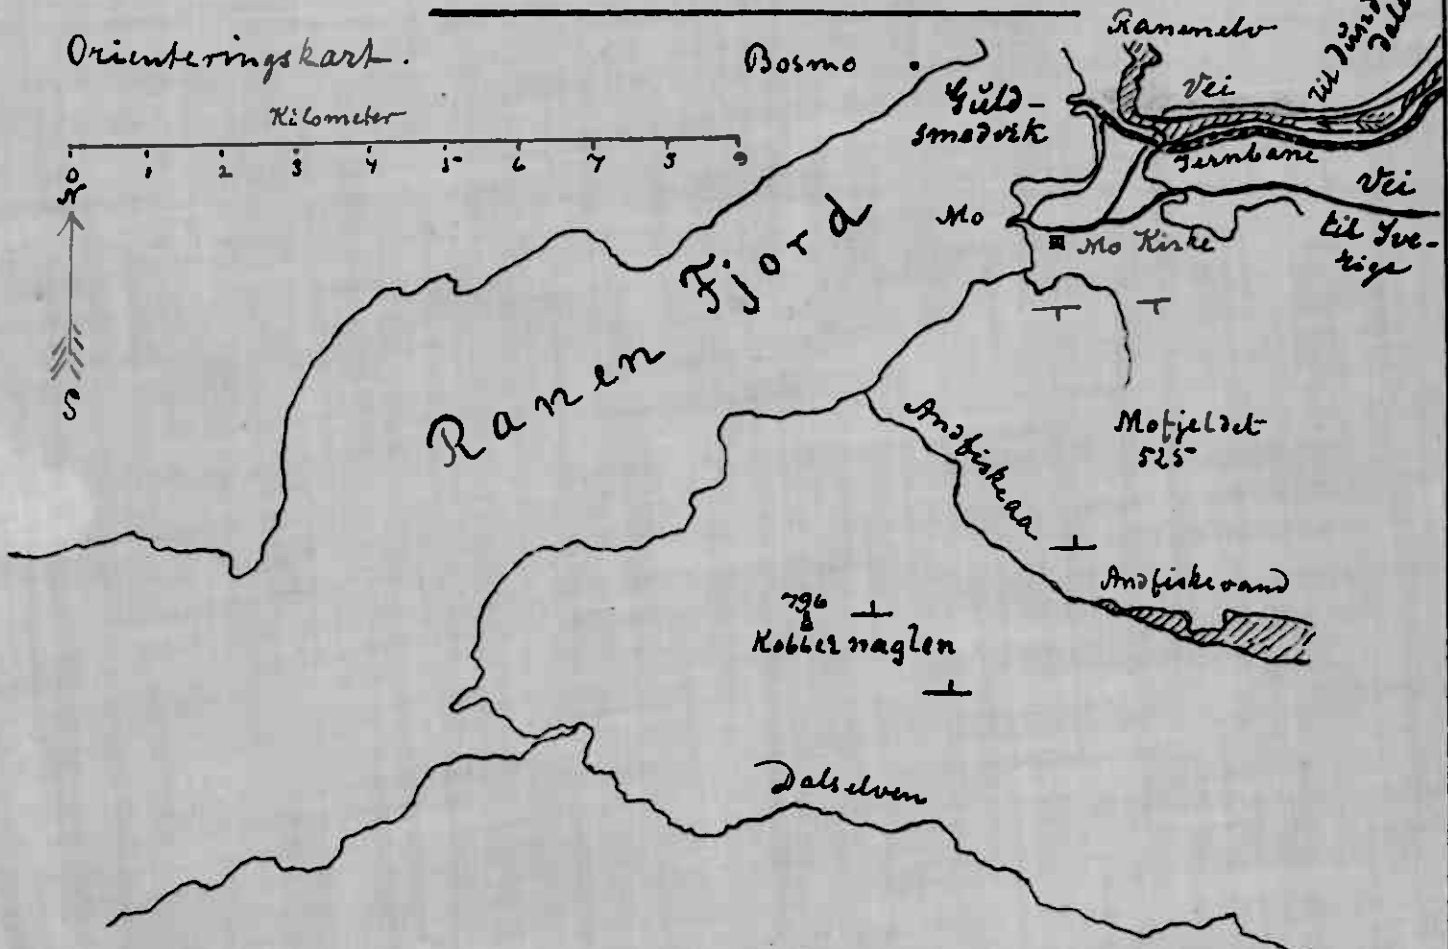 Orienteringskart.
Kilometer
0 1 2 3 4 5 6 7 8 9
N
S
Bosmo
Guld-
smedvik
Ranenelv
Vei
til Dund
dale
Jernbane
Vei
til Sve-
rige
Mo
Mo Kirke
Ranen Fjord
Andfiskeaa
Mofjeldet
525
Andfiskevand
796
Kobbernaglen
Dalselven